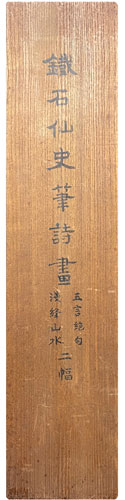 鐵石仙史筆詩畫
五言絶句
淺絳山水
二幅